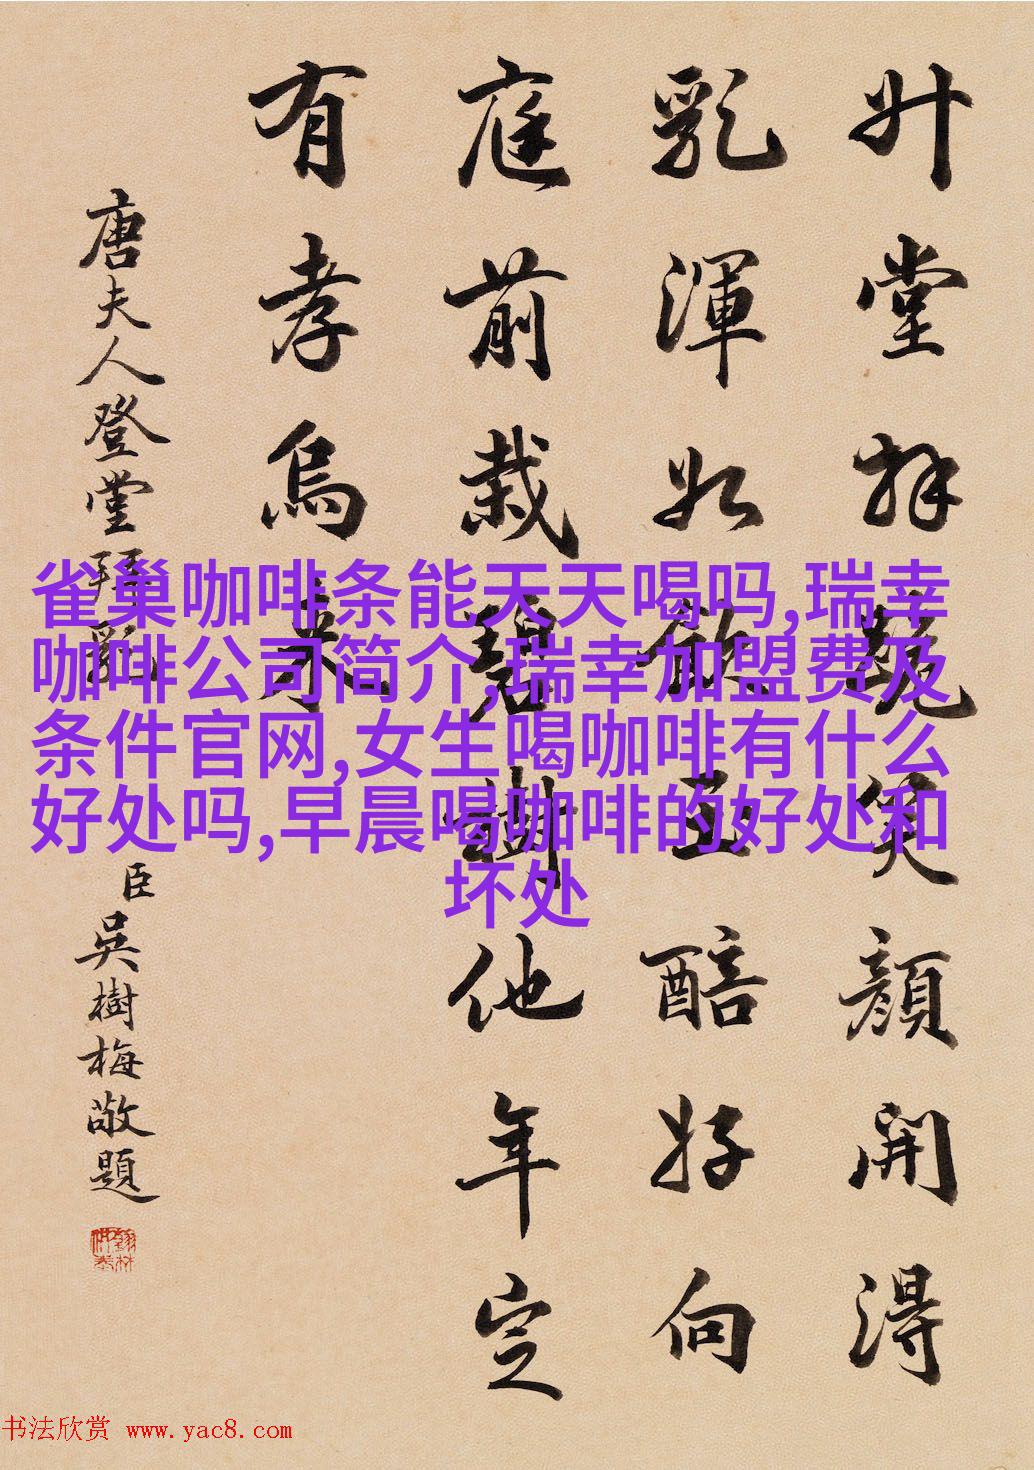 升堂拜笑顏開得
乳渾如飲玉醅好向
庭前栽碧樹他年定
有孝烏來
唐夫人登堂拜乳
臣吳樹梅敬題
雀巢咖啡条能天天喝吗,瑞幸
咖啡公司简介,瑞幸加盟费及
条件官网,女生喝咖啡有什么
好处吗,早晨喝咖啡的好处和
坏处
书法欣赏 www.yac8.com